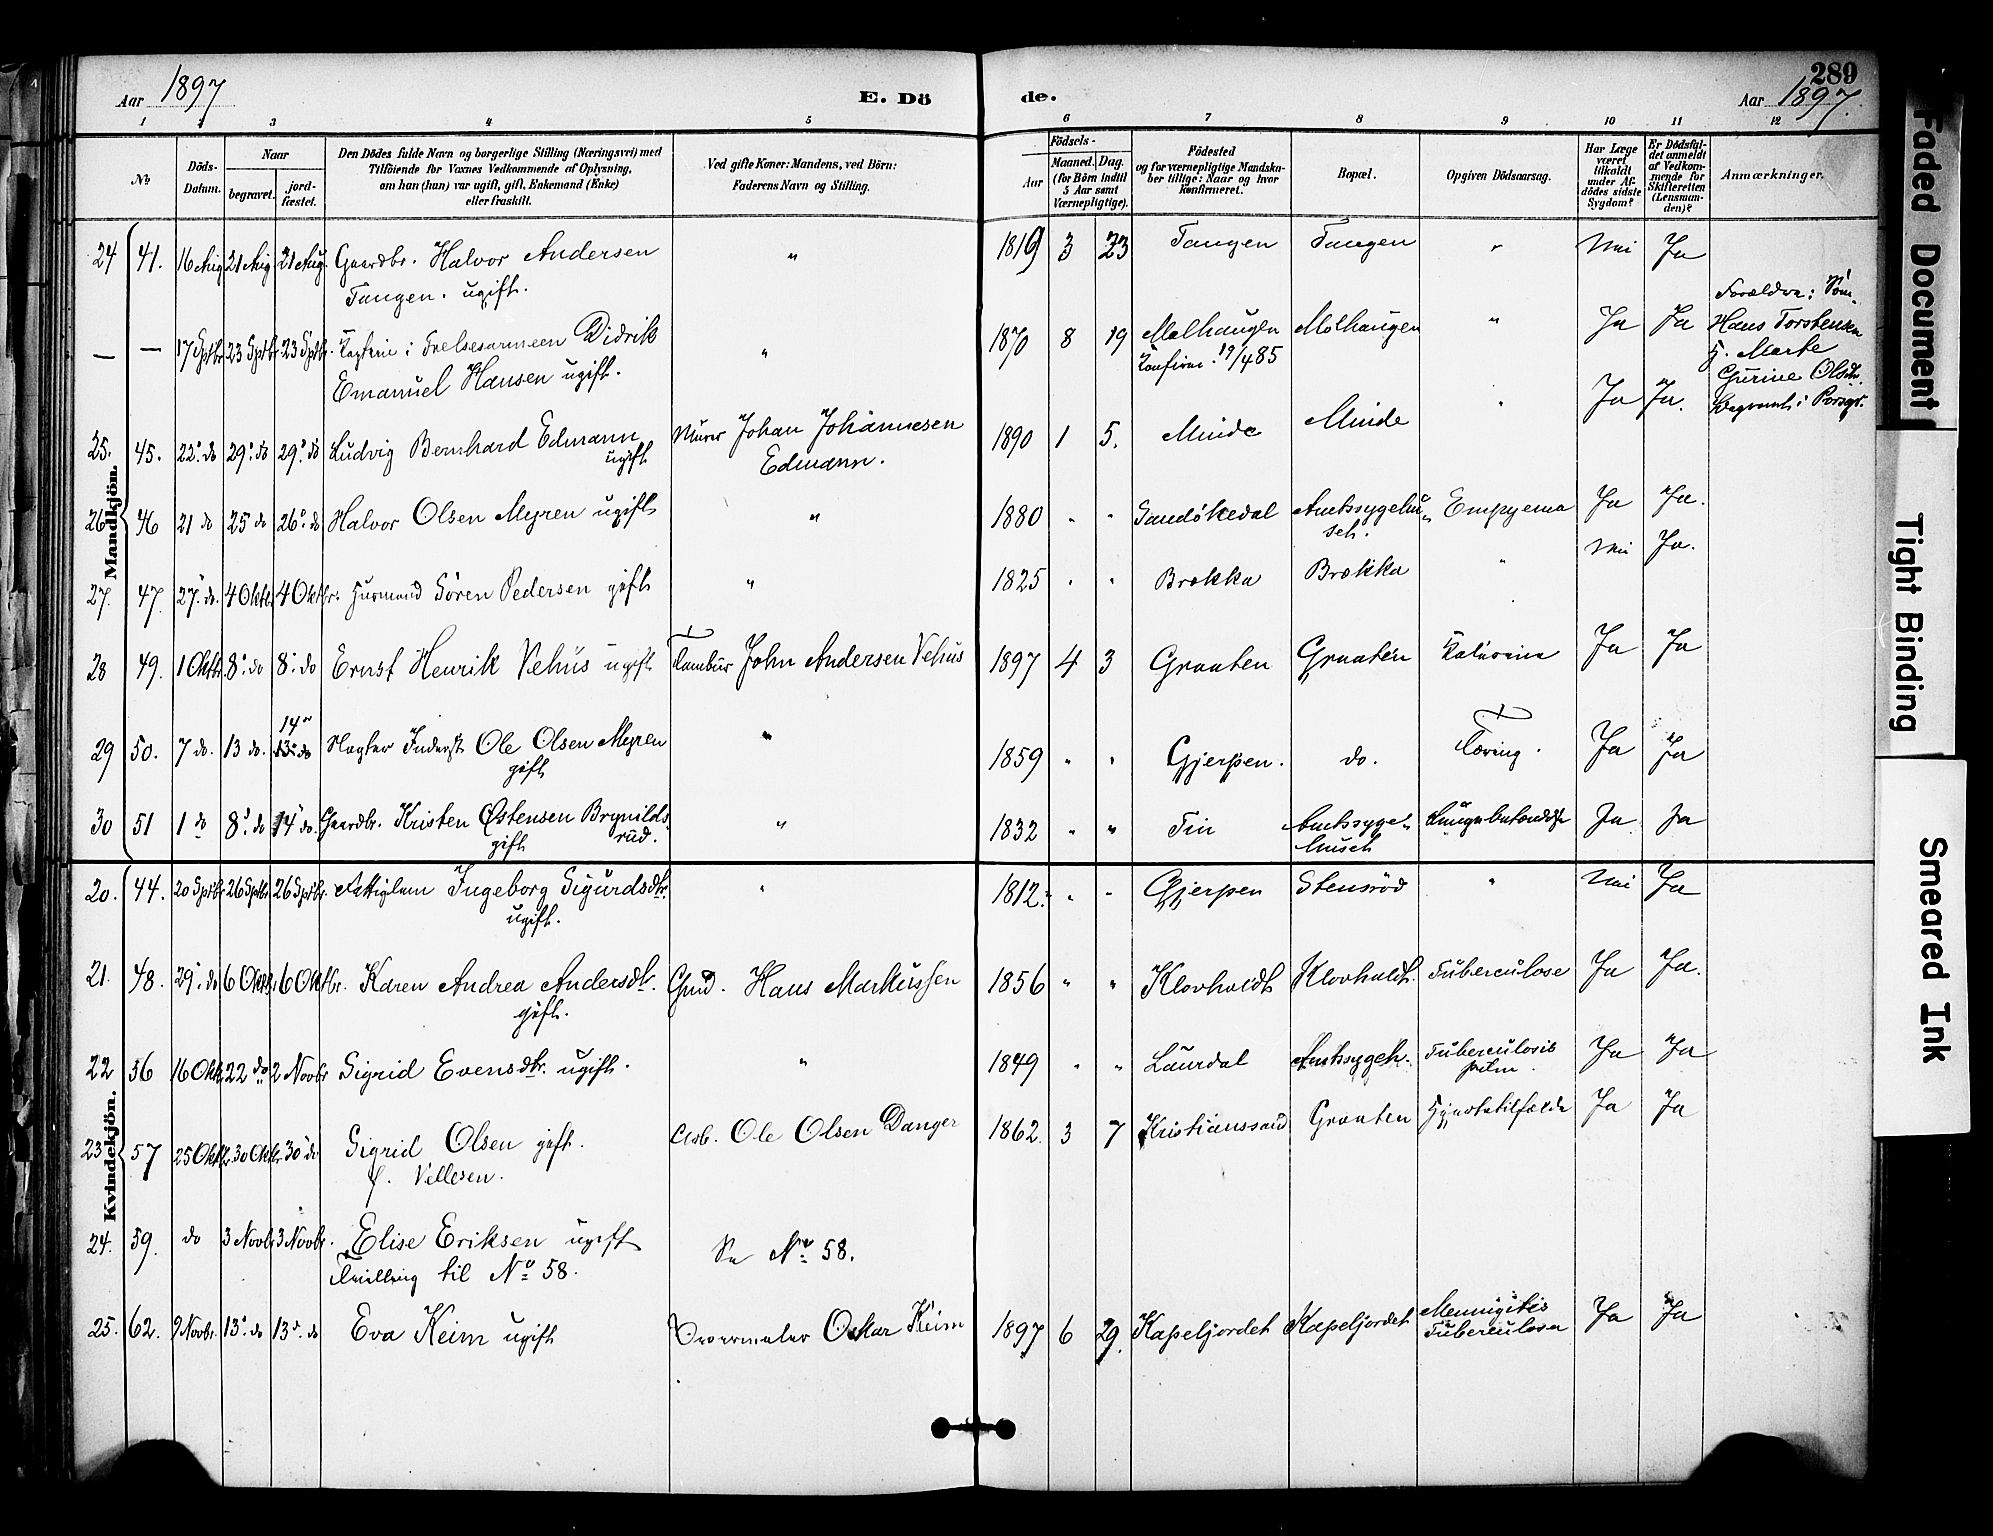 Aar 1897
E. Dö
de.
289
Aar 1897.
1 2 3 4 5 6 7 8 9 10 11 12
No
Döds-
Datum.
Naar
begravet.
jord-
fæstet.
Den Dödes fulde Navn og borgerlige Stilling (Næringsvei) med
Tilföiende for Voxnes Vedkommende af Oplysning,
om han (hun) var ugift, gift, Enkemand (Enke)
eller fraskilt.
Ved gifte Koner: Mandens, ved Börn:
Faderens Navn og Stilling.
Födsels-
Aar
Maaned. Dag.
(for Börn indtil
5 Aar samt
Værnepligtige).
Födested
og for værnepligtige Mandska-
ber tillige: Naar og hvor
Konfirmeret.
Bopæl.
Opgiven Dödsaarsag.
Har Læge
været
tilkaldt
under Af-
dödes sidste
Sygdom?
Er Dödsfal-
det anmeldt
af Vedkom-
mende for
Skifteretten
(Lensman-
den)?
Anmærkninger.
Mandkjön.
24 41. 16 Aug 21 Aug 21 Aug. Gaardbr. Halvor Andersen " 1819 3 23 Tangen Tangen " Nei Ja
Tangen. ugift.
— — 17 Sptbr 23 Sptbr 23 Sptbr. i Frelsesarmeen Didrik " 1870 8 19 Mælhaugen Mælhaugen " Ja Ja
Emanuel Hansen ugift. Konfirm. 19/4 85
Forældre:
Hans Torstensen
Marte
Gurine Olsdtr.
Begravet i Porsgr.
25. 45. 22. do 29. do 29. do Ludvig Bernhard Edmann Murer Johan Johannesen 1890 1 5. Minde Minde " Ja Ja.
ugift Edmann.
26 46 21 do 25 do 26. do Halvor Olsen Myren ugift " 1880 " " Sandökedal Amtssygehu- Empyema Ja Ja.
set.
27. 47. 27. do. 4 Oktbr 4 Oktbr. Husmand Sören Pedersen gift " 1825 " " Brækka Brække " Nei Ja.
28 49. 1 Oktbr 8. do 8. do Ernst Henrik Vehus ugift Tambur John Andersen Vehus 1897 4 3 Graaten Graaten Ja Ja
14
29 50. 7 do. 13 do. 13. do Inderst Ole Olsen Myren " 1859 " " Gjerpen. do. Tæring. Ja Ja
gift
30 51 1 do 8. do 14 do. Gaardbr. Kristen Østensen Brynilds- " 1832 " " Tin Amtssyge- Lungebetændelse Ja Ja
gift rud. huset
Kvindekjön.
20. 44. 20 Sptbr 26 Sptbr 26 Sptbr. Fattiglem Ingeborg Sigurdsdtr. " 1812. " " Gjerpen Stensröd " Nei Ja
ugift.
21. 48. 29. do 6 Oktbr. 6 Oktbr. Karen Andrea Andersdtr. Gmd. Hans Markussen 1856 " " Klovholdt Klovholdt. Tuberculose Ja Ja.
gift.
22 56 16 Okt 22 do 2 Novbr Sigrid Evensdtr. ugift. " 1849 " " Laurdal Amtssygeh. Tuberculosis Ja Ja
pulm.
23 57 25 Oktbr 30 Oktbr. 30 do Sigrid Olsen gift. Arb. Ole Olsen Danger 1862. 3 7 Kristianssand Graaten Hjertetilfælde Ja Ja
f. Vellesen.
24. 59. do 3 Novbr 3 Novbr. Elise Eriksen ugift Se No 58.
Tvilling til No 58.
25. 62. 9 Novbr. 13. do 13. do Eva Keim ugift Oskar Keim 1897 6 29. Kapeljordet Kapeljordet Mennigitis Ja Ja
Tuberculosa
Faded Document
Tight Binding
Smeared Ink